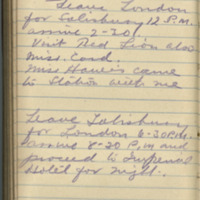 Leave London
for Salisbury 12 P.M.
arrive 2-20
Visit Red Lion also
Miss. Card.
Miss Hawkins came
to Station with me
Leave Salisbury
for London 6-30 P.M.
arrive 8-20 P.m and
proceed to Imperial
Hotel for night.